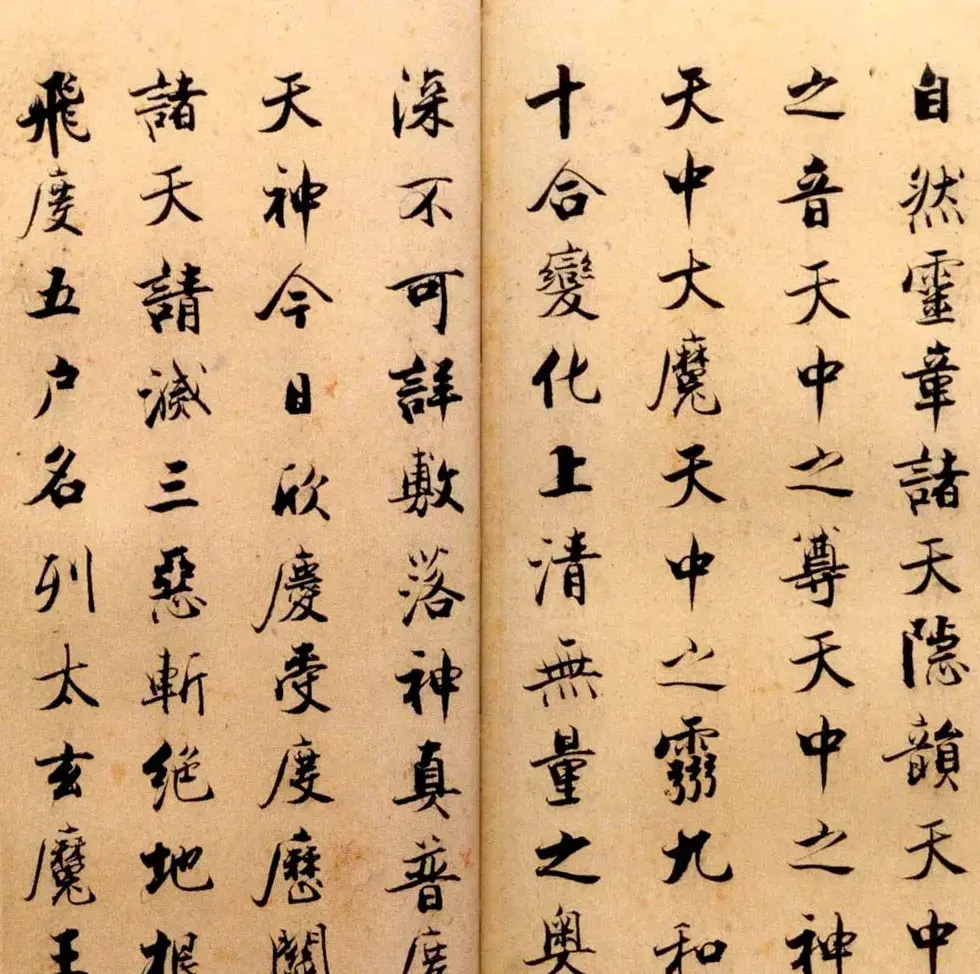 自然靈章諸天隱韻天中
之音天中之尊天中之神
天中大魔天中之靈九和
十合變化上清無量之奥
深不可詳敷落神真普度
天神今日欣慶受度歷關
諸天請滅三惡斬絕地根
飛度五户名列太玄魔王